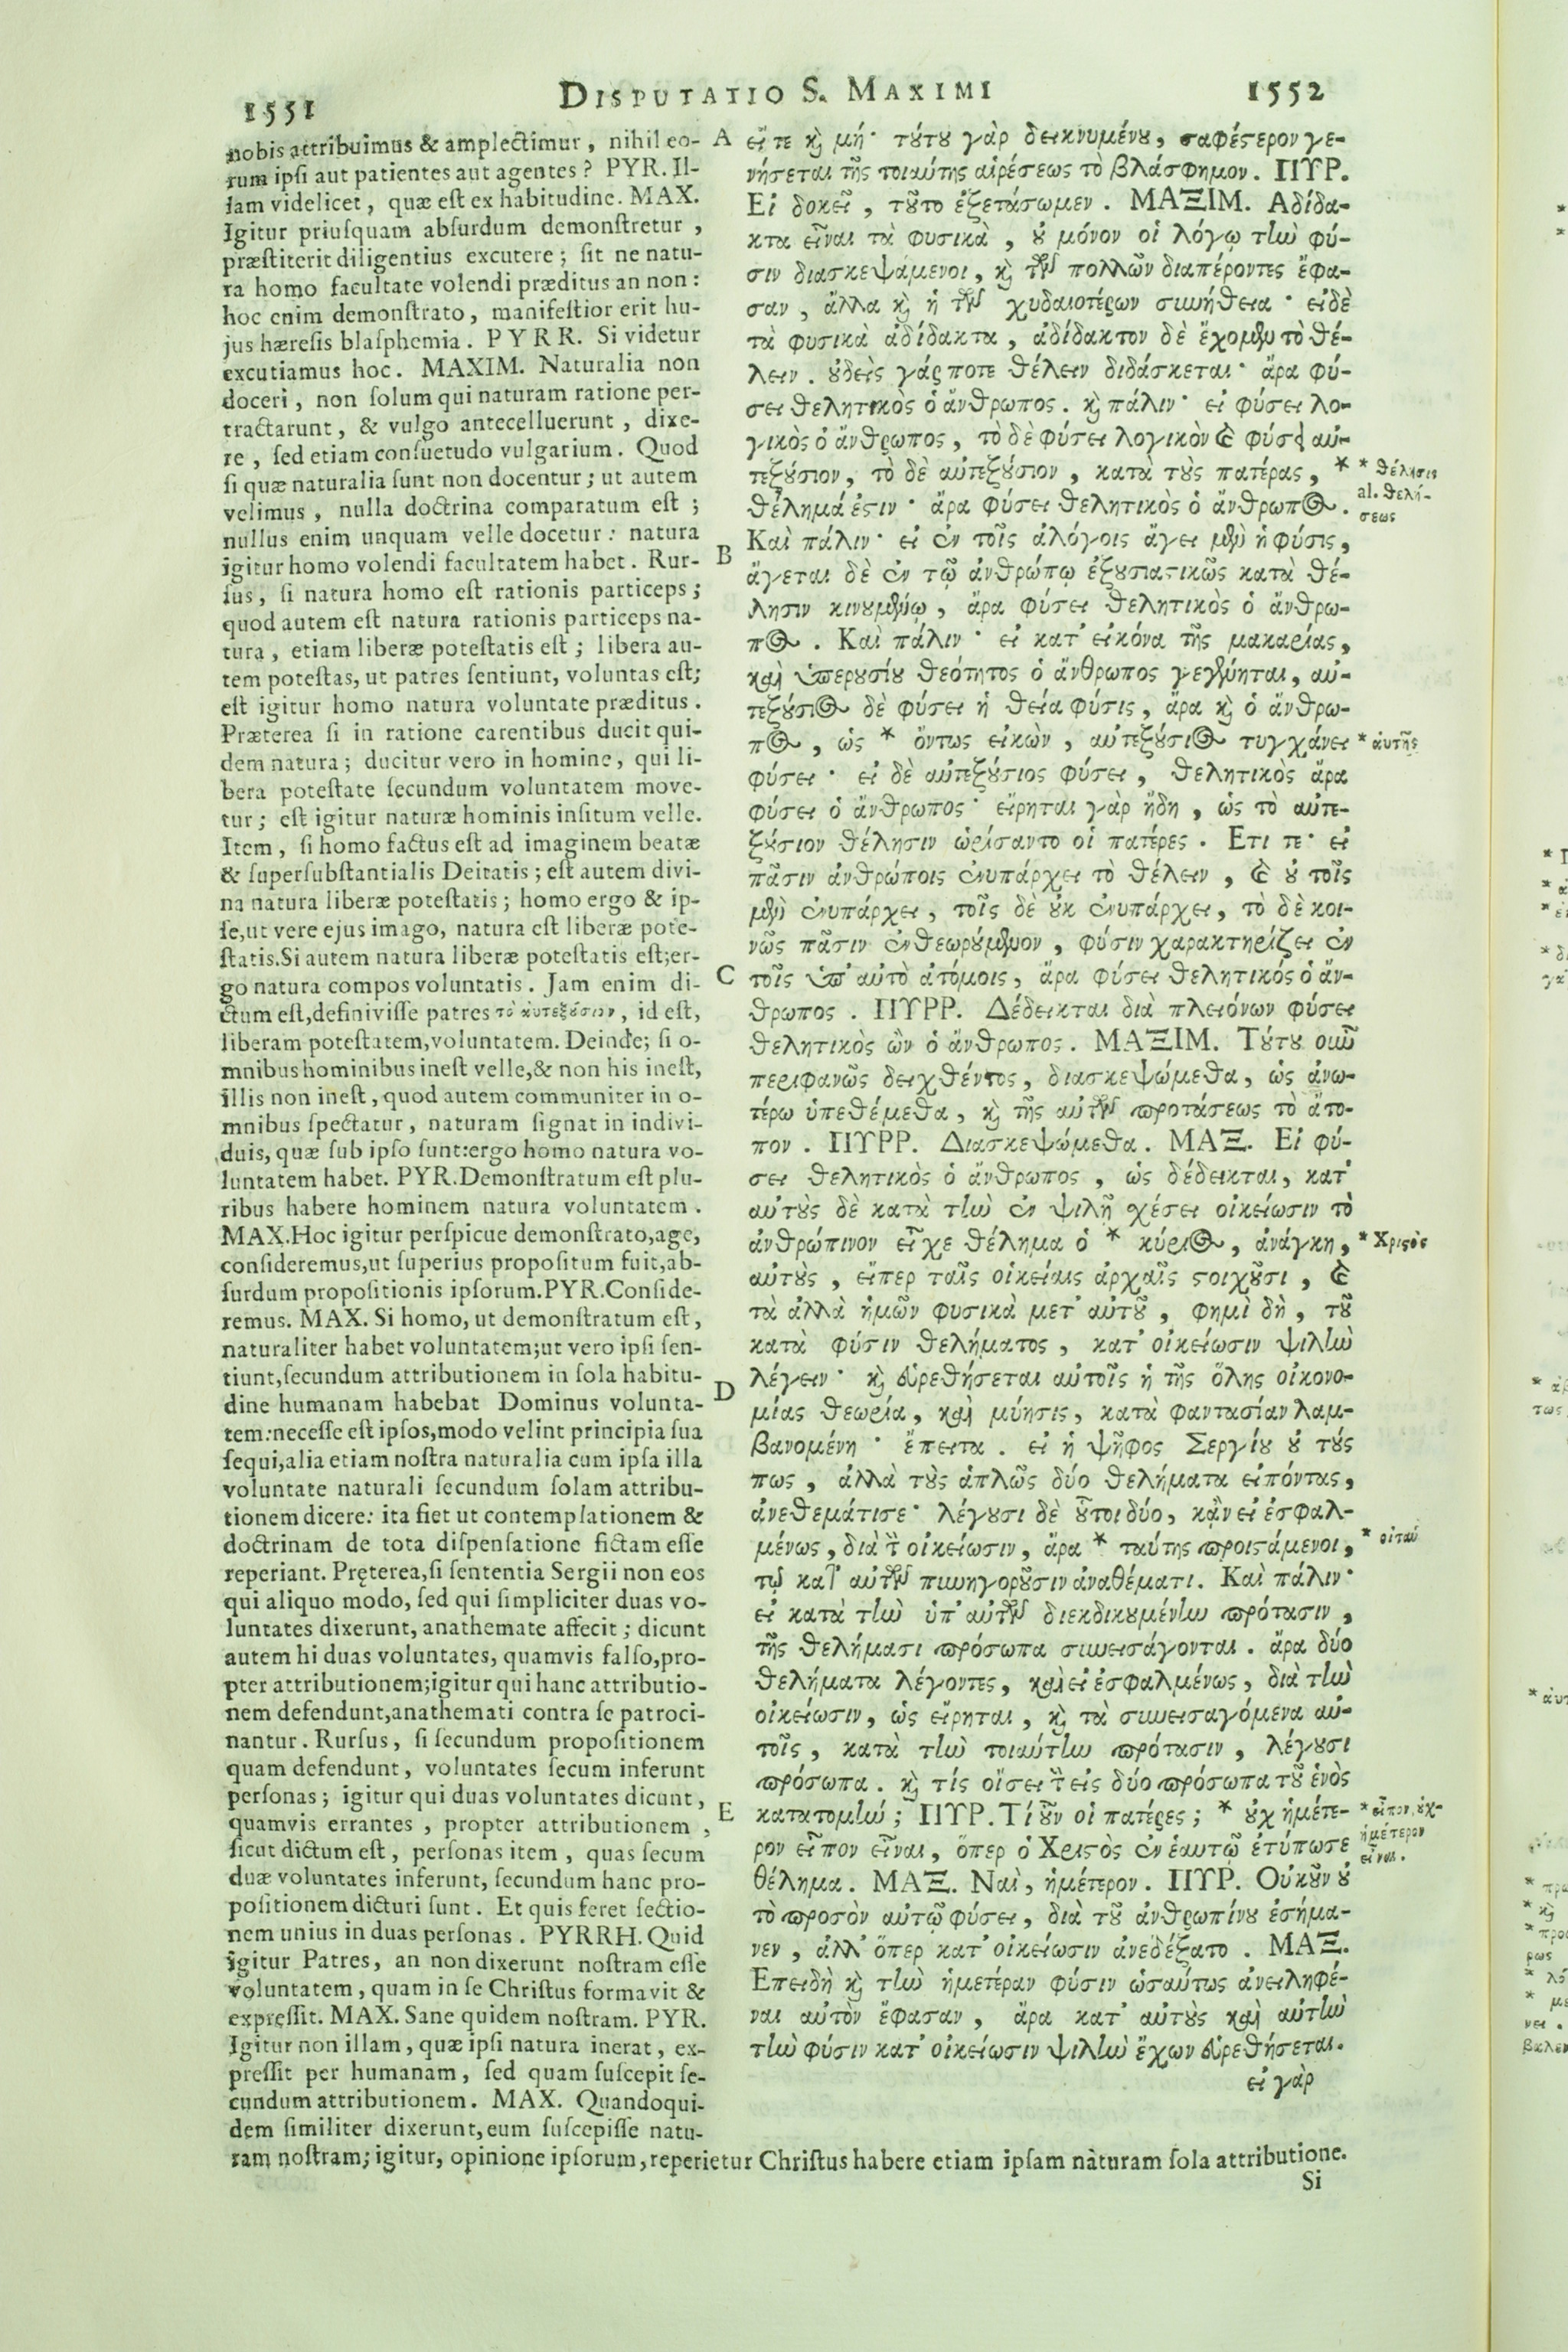 1551
DISPUTATIO S. MAXIMI
1552
nobis attribuimus & amplectimur, nihil eo-
rum ipsi aut patientes aut agentes? PYR. Il-
lam videlicet, quæ est ex habitudine. MAX.
Igitur priusquam absurdum demonstretur,
præstiterit diligentius excutere; sit ne natu-
ra homo facultate volendi præditus an non:
hoc enim demonstrato, manifestior erit hu-
jus hæresis blasphemia. PYRR. Si videtur
excutiamus hoc. MAXIM. Naturalia non
doceri, non solum qui naturam ratione per-
tractarunt, & vulgo antecelluerunt, dixe-
re, sed etiam consuetudo vulgarium. Quod
si quæ naturalia sunt non docentur; ut autem
velimus, nulla doctrina comparatum est;
nullus enim unquam velle docetur: natura
igitur homo volendi facultatem habet. Rur-
sus, si natura homo est rationis particeps;
quod autem est natura rationis particeps na-
tura, etiam liberæ potestatis est; libera au-
tem potestas, ut patres sentiunt, voluntas est;
est igitur homo natura voluntate præditus.
Præterea si in ratione carentibus ducit qui-
dem natura; ducitur vero in homine, qui li-
bera potestate secundum voluntatem move-
tur; est igitur naturæ hominis insitum velle.
Item, si homo factus est ad imaginem beatæ
& supersubstantialis Deitatis; est autem divi-
na natura liberæ potestatis; homo ergo & ip-
se, ut vere ejus imago, natura est liberæ pote-
statis. Si autem natura liberæ potestatis est; er-
go natura compos voluntatis. Jam enim di-
ctum est, definivisse patres τὸ αὐτεξούσιον, id est,
liberam potestatem, voluntatem. Deinde; si o-
mnibus hominibus inest velle, & non his inest,
illis non inest, quod autem communiter in o-
mnibus spectatur, naturam signat in indivi-
duis, quæ sub ipso sunt: ergo homo natura vo-
luntatem habet. PYR. Demonstratum est plu-
ribus habere hominem natura voluntatem.
MAX. Hoc igitur perspicue demonstrato, age,
consideremus, ut superius propositum fuit, ab-
surdum propositionis ipsorum. PYR. Conside-
remus. MAX. Si homo, ut demonstratum est,
naturaliter habet voluntatem; ut vero ipsi sen-
tiunt, secundum attributionem in sola habitu-
dine humanam habebat Dominus volunta-
tem: necesse est ipsos, modo velint principia sua
sequi, alia etiam nostra naturalia cum ipsa illa
voluntate naturali secundum solam attribu-
tionem dicere: ita fiet ut contemplationem &
doctrinam de tota dispensatione fictam esse
reperiant. Pręterea, si sententia Sergii non eos
qui aliquo modo, sed qui simpliciter duas vo-
luntates dixerunt, anathemate affecit; dicunt
autem hi duas voluntates, quamvis falso, pro-
pter attributionem; igitur qui hanc attributio-
nem defendunt, anathemati contra se patroci-
nantur. Rursus, si secundum propositionem
quam defendunt, voluntates secum inferunt
personas; igitur qui duas voluntates dicunt,
quamvis errantes, propter attributionem,
sicut dictum est, personas item, quas secum
duæ voluntates inferunt, secundum hanc pro-
positionem dicturi sunt. Et quis feret sectio-
nem unius in duas personas. PYRRH. Quid
igitur Patres, an non dixerunt nostram esse
voluntatem, quam in se Christus formavit &
expressit. MAX. Sane quidem nostram. PYR.
Igitur non illam, quæ ipsi natura inerat, ex-
pressit per humanam, sed quam suscepit se-
cundum attributionem. MAX. Quandoqui-
dem similiter dixerunt, eum suscepisse natu-
ram nostram; igitur, opinione ipsorum, reperietur Christus habere etiam ipsam nàturam sola attributione.
Si
A
B
C
D
E
εἴτε καὶ μή· τούτου γὰρ δεικνυμένου, σαφέστερον γε-
νήσεται τῆς τοιαύτης αἱρέσεως τὸ βλάσφημον. ΠΥΡ.
Εἰ δοκεῖ, τοῦτο ἐξετάσωμεν. ΜΑΞΙΜ. Αδίδα-
κτα εἶναι τὰ φυσικὰ, οὐ μόνον οἱ λόγῳ τὴν φύ-
σιν διασκεψάμενοι, καὶ τῶν πολλῶν διαπέροντες ἔφα-
σαν, ἄλλα καὶ ἡ τῶν χυδαιοτέρων συνήθεια· εἰ δὲ
τὰ φυσικὰ ἀδίδακτα, ἀδίδακτον δὲ ἔχομεν τὸ θέ-
λειν. οὐδεὶς γάρ ποτε θέλειν διδάσκεται· ἄρα φύ-
σει θελητικὸς ὁ ἄνθρωπος. καὶ πάλιν· εἰ φύσει λο-
γικὸς ὁ ἄνθρωπος, τὸ δὲ φύσει λογικὸν καὶ φύσει αὐ-
τεξούσιον, τὸ δὲ αὐτεξούσιον, κατὰ τοὺς πατέρας, *
θέλημά ἐστιν· ἄρα φύσει θελητικὸς ὁ ἄνθρωπος.
Καὶ πάλιν· εἰ ἐν τοῖς ἀλόγοις ἄγει μὲν ἡ φύσις,
ἄγεται δὲ ἐν τῷ ἀνθρώπῳ ἐξουσιατικῶς κατὰ θέ-
λησιν κινουμένῳ, ἄρα φύσει θελητικὸς ὁ ἄνθρω-
πος. Καὶ πάλιν· εἰ κατ' εἰκόνα τῆς μακαρίας,
καὶ ὑπερουσίου θεότητος ὁ ἄνθρωπος γεγένηται, αὐ-
τεξούσιος δὲ φύσει ἡ θεία φύσις, ἄρα καὶ ὁ ἄνθρω-
πος, ὡς * ὄντως εἰκὼν, αὐτεξούσιος τυγχάνει
φύσει· εἰ δὲ αὐτεξούσιος φύσει, θελητικὸς ἄρα
φύσει ὁ ἄνθρωπος· εἴρηται γὰρ ἤδη, ὡς τὸ αὐτε-
ξούσιον θέλησιν ὡρίσαντο οἱ πατέρες. Ετι τε· εἰ
πᾶσιν ἀνθρώποις ἐνυπάρχει τὸ θέλειν, καὶ οὐ τοῖς
μὲν ἐνυπάρχει, τοῖς δὲ οὐκ ἐνυπάρχει, τὸ δὲ κοι-
νῶς πᾶσιν ἐνθεωρούμενον, φύσιν χαρακτηρίζει ἐν
τοῖς ὑπ' αὐτὸ ἀτόμοις, ἄρα φύσει θελητικός ὁ ἄν-
θρωπος. ΠΥΡΡ. Δέδεικται διὰ πλειόνων φύσει
θελητικὸς ὢν ὁ ἄνθρωπος. ΜΑΞΙΜ. Τούτου οὖν
περιφανῶς δειχθέντος, διασκεψώμεθα, ὡς ἀνω-
τέρω ὑπεθέμεθα, καὶ τῆς αὐτῶν προτάσεως τὸ ἄτο-
πον. ΠΥΡΡ. Διασκεψώμεθα. ΜΑΞ. Εἰ φύ-
σει θελητικὸς ὁ ἄνθρωπος, ὡς δέδεικται, κατ'
αὐτοὺς δὲ κατὰ τὴν ἐν ψιλῇ σχέσει οἰκείωσιν τὸ
ἀνθρώπινον εἶχε θέλημα ὁ * κύριος, ἀνάγκη,
αὐτοὺς, εἴπερ ταῖς οἰκείαις ἀρχαῖς στοιχοῦσι, καὶ
τὰ ἀλλὰ ἡμῶν φυσικὰ μετ' αὐτοῦ, φημὶ δὴ, τοῦ
κατὰ φύσιν θελήματος, κατ' οἰκείωσιν ψιλὴν
λέγειν· καὶ εὑρεθήσεται αὐτοῖς ἡ τῆς ὅλης οἰκονο-
μίας θεωρία, καὶ μύησις, κατὰ φαντασίαν λαμ-
βανομένη· ἔπειτα. εἰ ἡ ψῆφος Σεργίου οὐ τούς
πως, ἀλλὰ τοὺς ἁπλῶς δύο θελήματα εἰπόντας,
ἀνεθεμάτισε· λέγουσι δὲ οὗτοι δύο, κἂν εἰ ἐσφαλ-
μένως, διὰ τὴν οἰκείωσιν, ἄρα * ταύτης προιστάμενοι,
τῷ κατ' αὐτῶν συνηγοροῦσιν ἀναθέματι. Καὶ πάλιν·
εἰ κατὰ τὴν ὑπ' αὐτῶν διεκδικουμένην πρότασιν,
τῆς θελήμασι πρόσωπα συνεισάγονται. ἄρα δύο
θελήματα λέγοντες, καὶ εἰ ἐσφαλμένως, διὰ τὴν
οἰκείωσιν, ὡς εἴρηται, καὶ τὰ συνεισαγόμενα αὐ-
τοῖς, κατὰ τὴν τοιαύτην πρότασιν, λέγουσι
πρόσωπα. καὶ τίς οἴσει τὴν εἰς δύο πρόσωπα τοῦ ἑνὸς
κατατομήν; ΠΥΡ. Τί οὖν οἱ πατέρες; * οὐχ ἡμέτε-
ρον εἶπον εἶναι, ὅπερ ὁ Χριστὸς ἐν ἑαυτῷ ἐτύπωσε
θέλημα. ΜΑΞ. Ναὶ, ἡμέτερον. ΠΥΡ. Οὐκοῦν οὐ
τὸ προσὸν αὐτῷ φύσει, διὰ τοῦ ἀνθρωπίνου ἐσήμα-
νεν, ἀλλ' ὅπερ κατ' οἰκείωσιν ἀνεδέξατο. ΜΑΞ.
Επειδὴ καὶ τὴν ἡμετέραν φύσιν ὡσαύτως ἀνειληφέ-
ναι αὐτὸν ἔφασαν, ἄρα κατ' αὐτοὺς καὶ αὐτὴν
τὴν φύσιν κατ' οἰκείωσιν ψιλὴν ἔχων εὑρεθήσεται.
εἰ γὰρ
* θέλησις
al. θελή-
σεως
* αὐτῆς
* Χριστὸς
* εἶπον, οὐχ
ἡμέτερον
εἶναι.